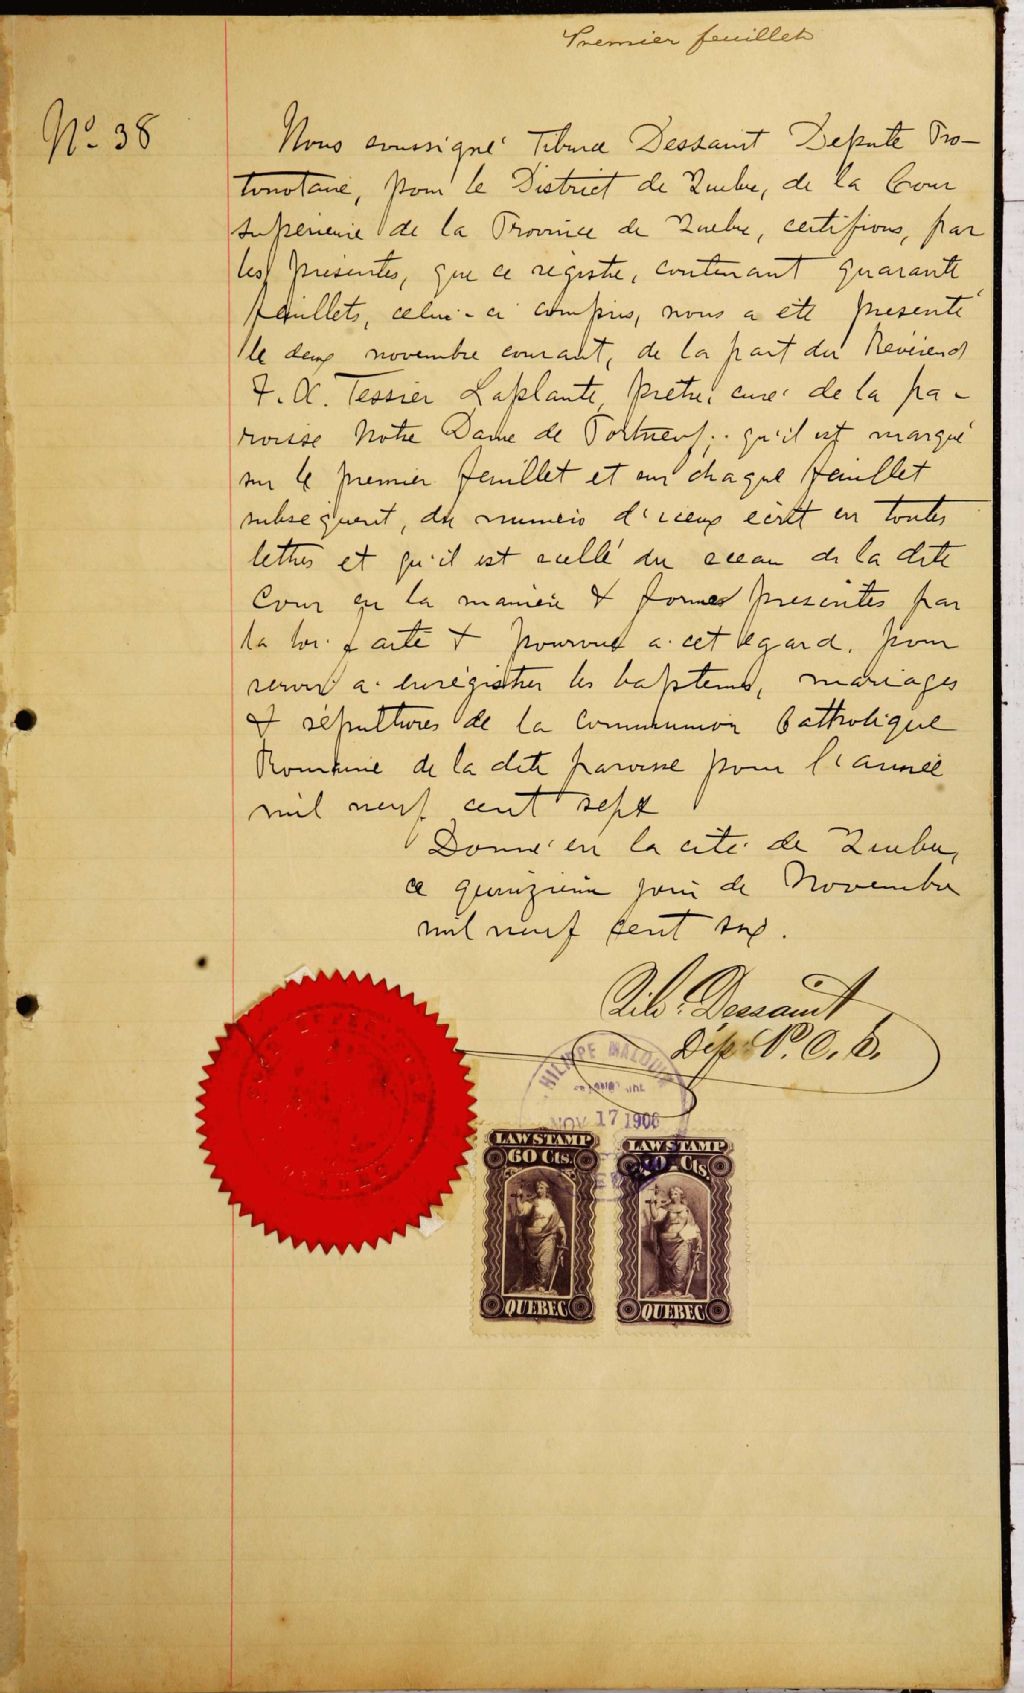 Premier feuillet
No 38
Nous soussigné Tiburce Dessaint Député Pro-
tonotaire, pour le District de Québec, de la Cour
supérieure de la Province de Québec, certifions, par
les présentes, que ce registre, contenant quarante
feuillets, celui-ci compris, nous a été présenté
le deux novembre courant, de la part du Révérend
F. X. Tessier Laplante, prêtre, curé de la pa-
roisse Notre Dame de Portneuf; qu'il est marqué
sur le premier feuillet et sur chaque feuillet
subséquent, du numéro d'iceux écrit en toutes
lettres et qu'il est scellé du sceau de la dite
Cour en la manière & formes prescrites par
la loi faite & pourvue à cet égard, pour
servir à enrégistrer les baptêmes, mariages
& sépultures de la communion Catholique
Romaine de la dite paroisse pour l'année
mil neuf cent sept
Donné en la cité de Québec,
ce quinzième jour de Novembre
mil neuf cent six.
Tib. Dessaint
Dép. P. C. S.
PHILIPPE MALOUIN
NOV 17 1906
LAW STAMP
60 Cts.
QUEBEC
LAW STAMP
Cts.
QUEBEC